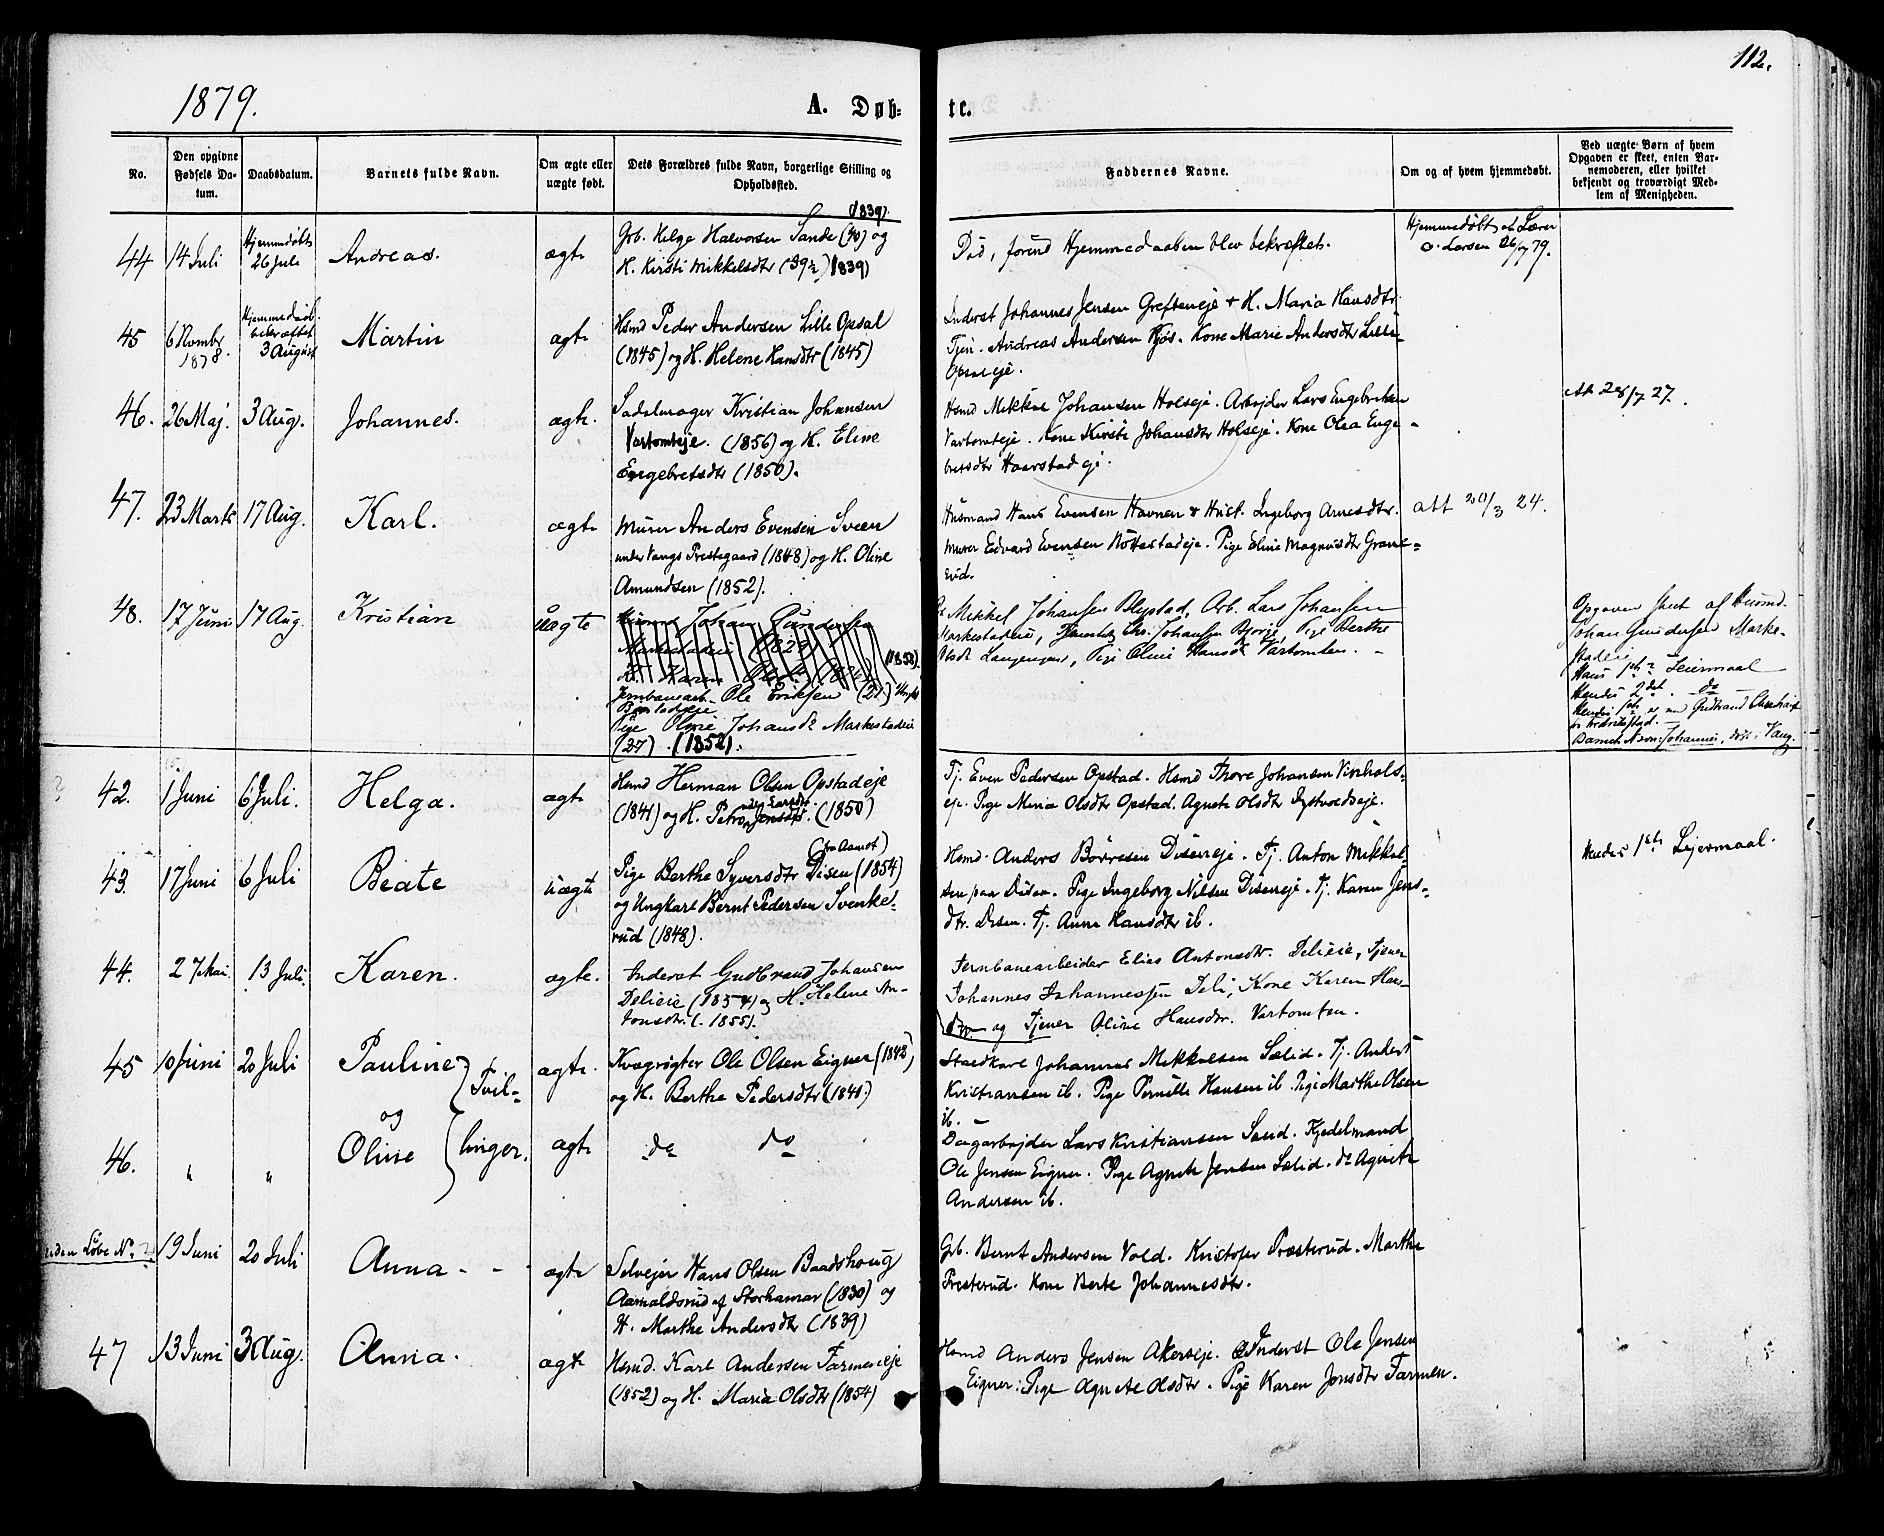 112.
1879.
A. Døb=
te.
No.
Den opgivne Fødsels Da-tum.
Daabsdatum.
Barnets fulde Navn.
Om ægte eller uægte født.
Dets Forældres fulde Navn, borgerlige Stilling og Opholdssted.
Faddernes Navne.
Om og af hvem hjemmedøbt.
Ved uægte Børn af hvem Opgaven er skeet, enten Bar-nemoderen, eller hvilket bekjendt og troværdigt Med-lem af Menigheden.
44
14 Juli
Hjemmedøbt
26 Juli
Andreas.
ægte
(1839)
Grb. Helge Halvorsen Sande (40) og
H. Kirsti Mikkelsdtr (39½) (1839)
Død, førend Hjemmedaaben blev bekræftet.
Hjemmedøbt af Lærer
O. Larsen 26/7 79.
45
6 Novmbr
1878.
Hjemmedaab
bekræftet
3 August
Martin
ægte
Hsmd Peder Andersen Lille Opsal
(1845) og H. Helene Hansdtr (1845)
Inderst Johannes Jensen Grefteneje + H. Maria Hansdtr.
Tjen. Andreas Andersen Kjos. Kone Marie Andersdtr Lille
Opsaleje.
46.
26 Maj.
3 Aug.
Johannes.
ægte.
Sadelmager Kristian Johansen
Vartomteje. (1856) og H. Eline
Engebretsdtr (1850).
Hsmd Mikkel Johansen Holseje. Arbejder Lars Engebretsen
Vartomteje. Kone Kirsti Johansdtr Holseje. Kone Olea Enge-
bretsdtr Haarstadeje.
Att 28/7 27.
47.
23 Marts
17 Aug.
Karl.
ægte
Murer Anders Evensen Sveen
under Vangs Prestegaard (1848) og H. Oline
Amundsen (1852).
Husmand Hans Evensen Havnen & Hust. Ingeborg Arnesdtr.
Murer Edvard Evensen Nøttestadeje. Pige Eline Magnusdtr Grane-
rud.
att 20/3 24.
48.
17 Juni
17 Aug.
Kristian
uægte
Johan Gundersen
Jernbanearb. Ole Eriksen (21) Ungk
(1858)
Pige Oline Johansdtr Markestadeie
(27). (1852).
Mikkel Johansen Blystad, Arb. Lars Johansen
Markestadeie, Chr. Johansen Bjørge, Pige Berthe
Langengen, Pige Oline Hansdtr Vartomten.
Opgaven skeet af Husmd.
Johan Gundersen Marke-
stadeie
Hans 1ste Leiermaal
Hendes 2det do
42.
1 Juni
6 Juli.
Helga.
ægte
Hsmd Herman Olsen Opstadeje
(1841) og H. Petra Jensdtr. (1850)
Tj. Even Pedersen Opstad. Hsmd Thore Johansen Vinhols-
eje. Pige Mina Olsdtr Opstad. Agnete Olsdtr Dystvoldseje.
43.
17 Juni
6 Juli
Beate
uægte
(fra Aamot)
Pige Berthe Syversdtr Disen (1854)
og Ungkarl Bernt Pedersen Svenke-
rud (1848).
Hsmd. Anders Børresen Diseneje. Tj. Anton Mikkel-
sen paa Disen. Pige Ingeborg Nilsen Diseneje. Tj. Karen Jens-
dtr. Disen. Tj. Anne Hansdtr ib.
Hendes 1ste Lejermaal.
44.
27 Mai.
13 Juli.
Karen.
ægte.
Inderst Gudbrand Johansen
Delieie (1854) og H. Helene An-
tonsdtr. (1855).
Jernbanearbeider Elias Antonsdtr. Delieie, Tjener
Johannes Johannessen Deli, Kone Karen Hans-
dtr og Tjener Oline Hansdtr. Vartomten.
45
10 Juni
20 Juli
Pauline
og
Tvil-
ægte.
Kvægrøgter Ole Olsen Eigner (1842)
og H. Berthe Pedersdtr (1840)
Staldkarl Johannes Mikkelsen Sælid. Tj. Anders
Kristiansen ib. Pige Pernille Hansen ib. Pige Marthe Olsen
ib.
46.
"
"
Oline
linger.
ægte
do do
Dagarbejder Lars Kristiansen Sand. Kjedelmand
Ole Jensen Eigner. Pige Agnete Jensen Sælid. do Agnete
Andersen ib.
uden Løbe No.
19 Juni
20 Juli
Anna - -
ægte
Selvejer Hans Olsen Baadshoug
Aarnaldsrud af Storhamar (1830) og
H. Marthe Andersdtr (1839)
Grb. Bernt Andersen Vold. Kristofer Præsterud. Marthe
Presterud. Kone Berte Johannesdtr.
47
13 Juni
3 Aug.
Anna.
ægte
Hsmd. Karl Andersen Farmeneje
(1852) og H. Maria Olsdtr (1854)
Hsmd Anders Jensen Akerseje. Inderst Ole Jensen
Eigner. Pige Agnete Olsdtr. Pige Karen Jonsdtr Farmen.